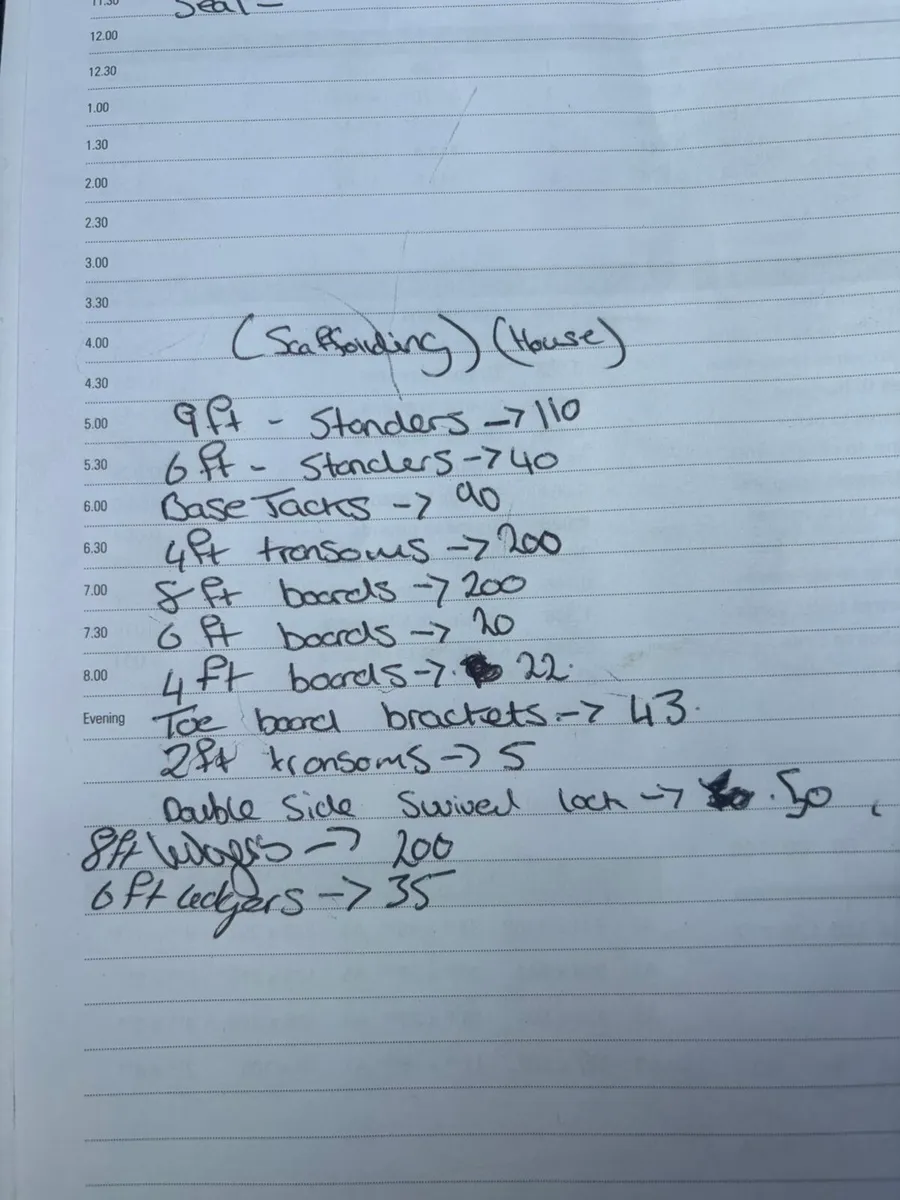 11.30 Seal -
12.00
12.30
1.00
1.30
2.00
2.30
3.00
3.30
4.00 (Scaffolding) (House)
4.30
5.00 9ft - Standers -> 110
5.30 6ft - Standers -> 40
6.00 Base Jacks -> 90
6.30 4ft transoms -> 200
7.00 8ft boards -> 200
7.30 6ft boards -> 20
8.00 4ft boards -> 22.
Evening Toe board brackets -> 43.
2ft transoms -> 5
Double Side Swivel lock -> 50
8ft ledgers -> 200
6ft ledgers -> 35